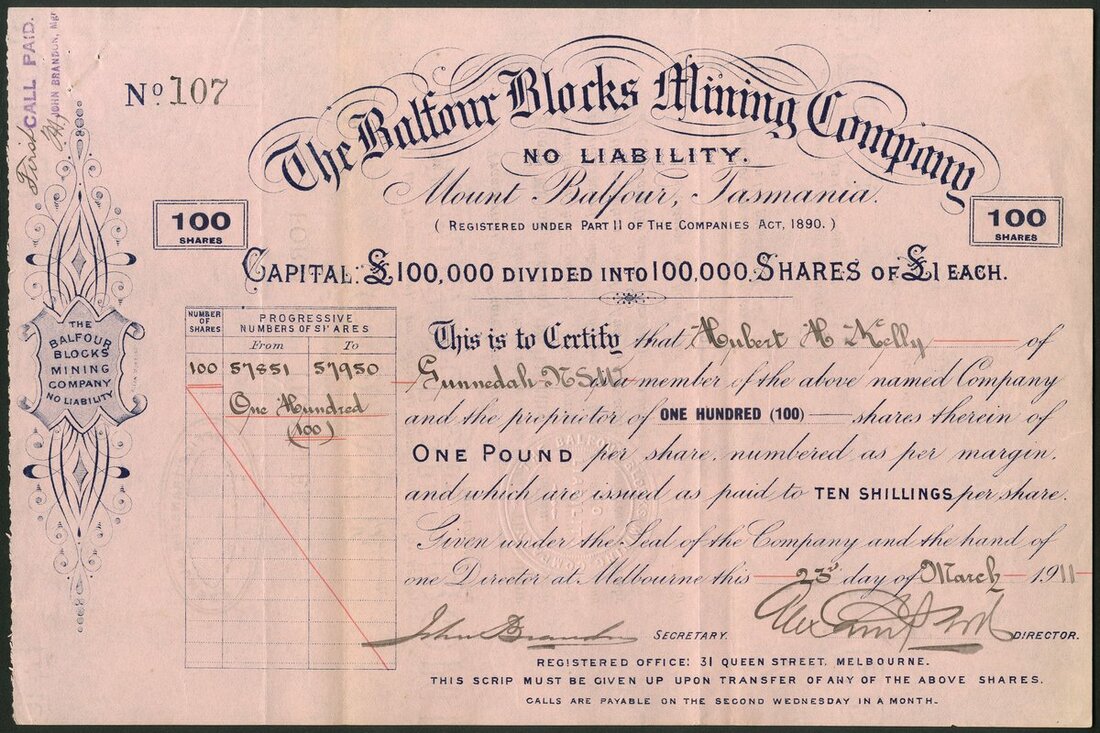 First CALL PAID.
JOHN BRANDON, Mgr
No. 107
The Balfour Blocks Mining Company
NO LIABILITY.
Mount Balfour, Tasmania.
(REGISTERED UNDER PART II OF THE COMPANIES ACT, 1890.)
100 SHARES
100 SHARES
CAPITAL: £100,000 DIVIDED INTO 100,000 SHARES OF £1 EACH.
THE
BALFOUR
BLOCKS
MINING
COMPANY
NO LIABILITY
NUMBER OF SHARES
PROGRESSIVE NUMBERS OF SHARES
From To
100 57851 57950
One Hundred
(100)
This is to Certify that Hubert H McKelly of
Gunnedah NSW is a member of the above named Company
and the proprietor of ONE HUNDRED (100) shares therein of
ONE POUND per share, numbered as per margin,
and which are issued as paid to TEN SHILLINGS per share.
Given under the Seal of the Company and the hand of
one Director at Melbourne this 23rd day of March 1911
John Brandon SECRETARY. Alex DIRECTOR.
REGISTERED OFFICE: 31 QUEEN STREET, MELBOURNE.
THIS SCRIP MUST BE GIVEN UP UPON TRANSFER OF ANY OF THE ABOVE SHARES.
CALLS ARE PAYABLE ON THE SECOND WEDNESDAY IN A MONTH.